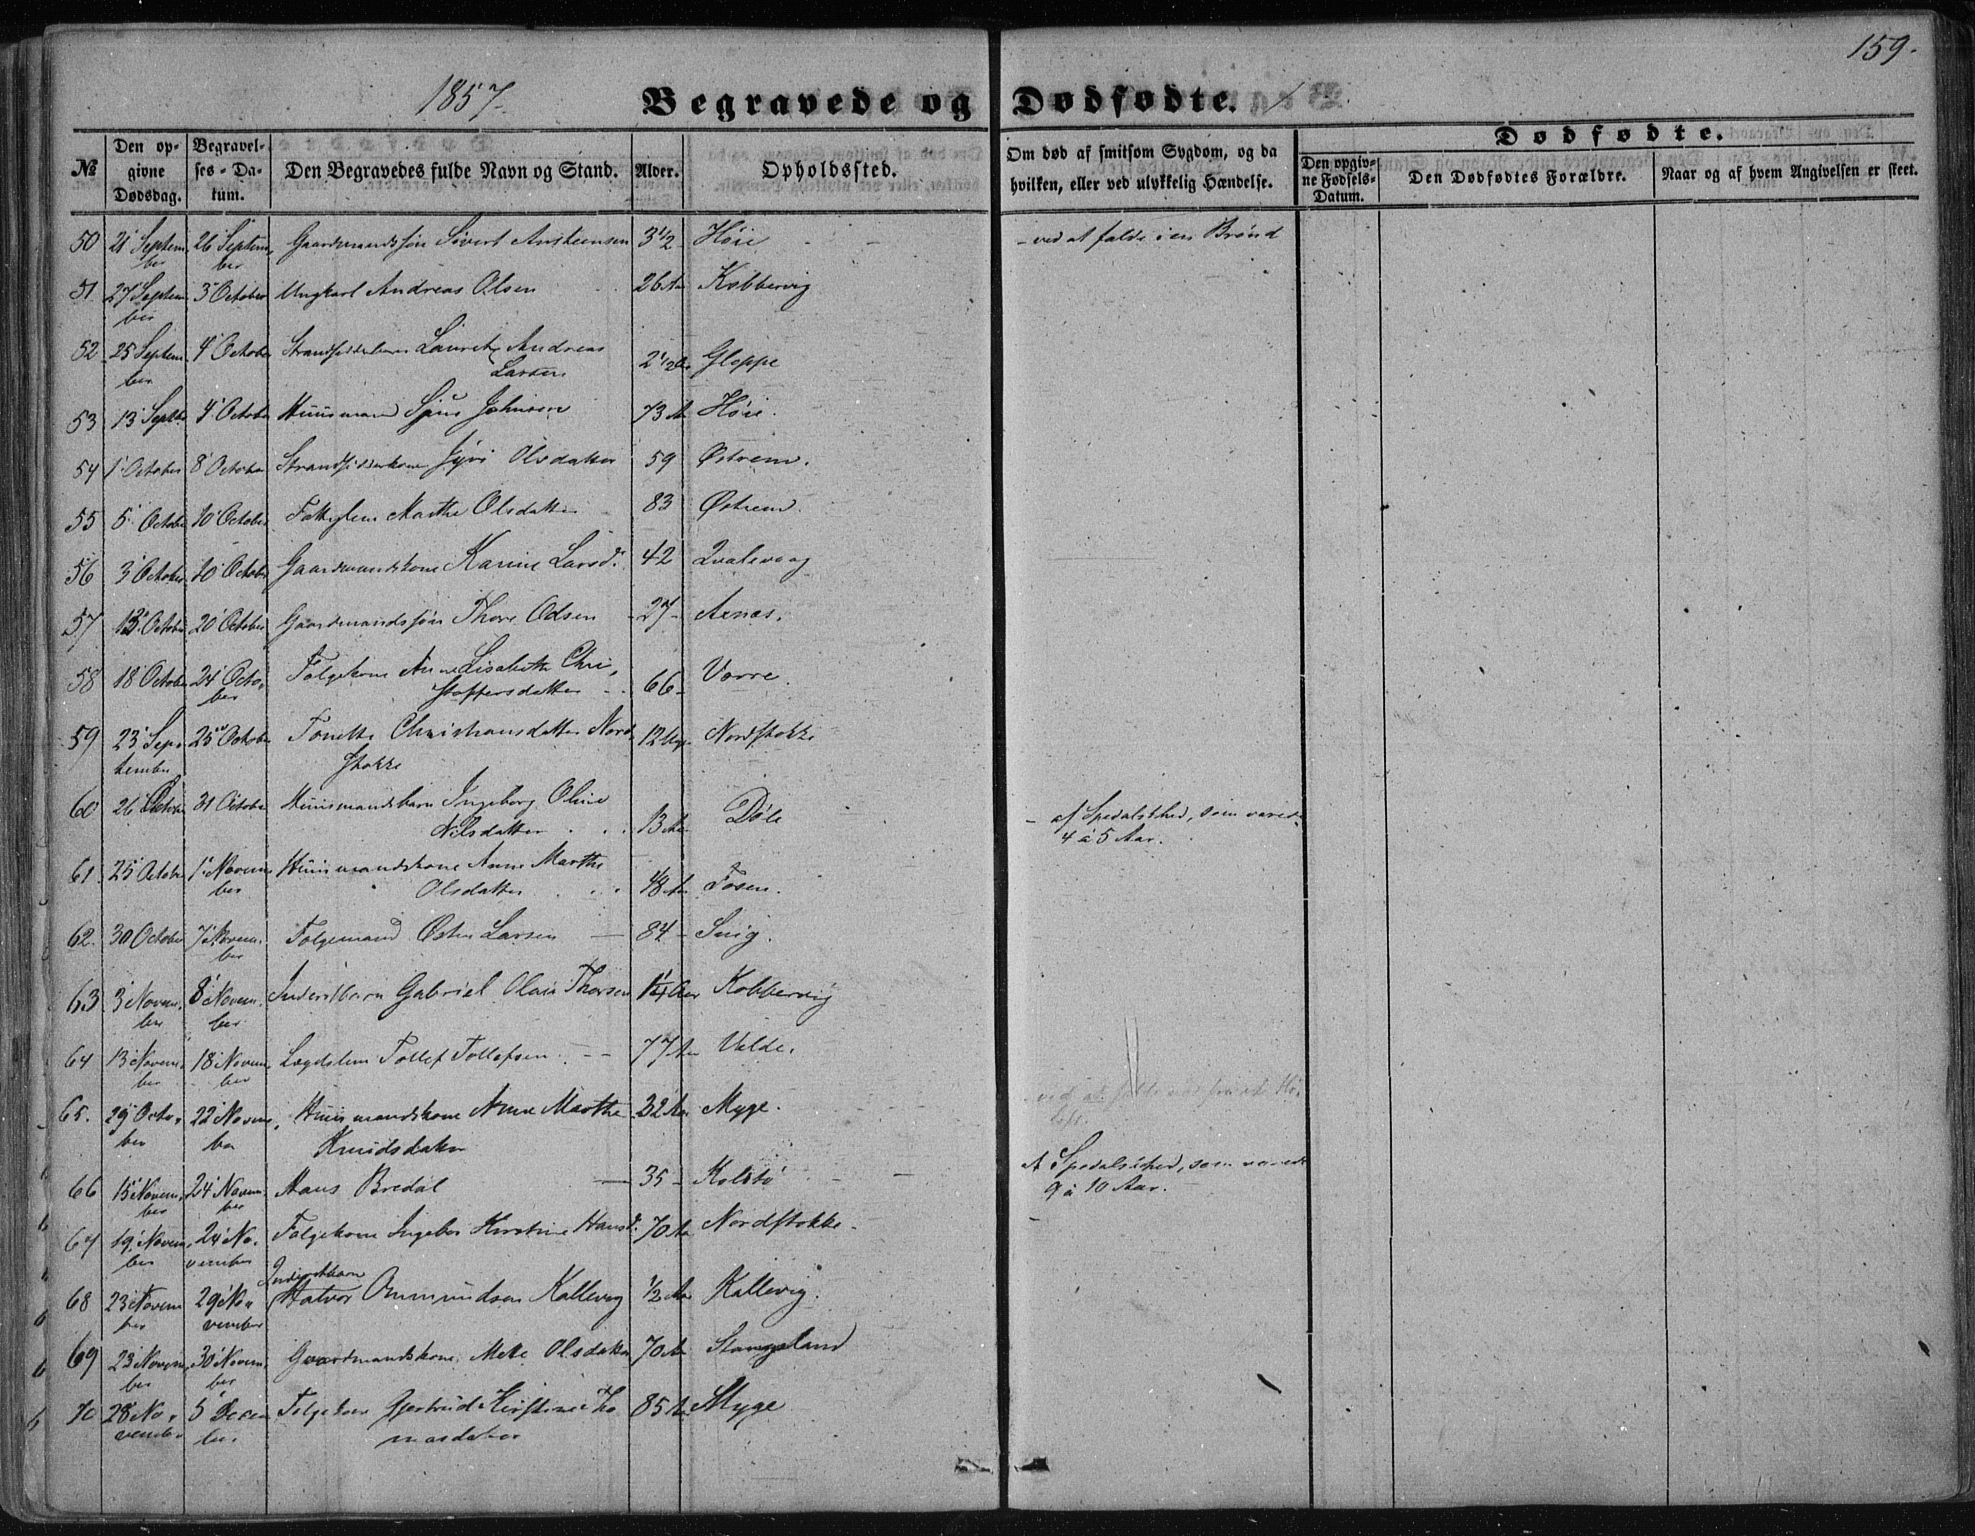 159.
1857.
Begravede og Dødfødte.
№
Den opgivne Dødsdag.
Begravelses-Datum.
Den Begravedes fulde Navn og Stand.
Alder.
Opholdssted.
Om død af smitsom Sygdom, og da hvilken, eller ved ulykkelig Hændelse.
Dødfødte.
Den opgivne Fødsels-Datum.
Den Dødfødtes Forældre.
Naar og af hvem Angivelsen er skeet.
50 21 September 26 September Gaardmandssøn Sivert Ansteensen 3 1/2 Høie - ved at falde i en Brønd
51 27 September 3 October Ungkarl Andreas Olsen 26 Aar Kobbervig
52 25 September 4 October Strandsidderbarn Lauritz Andreas Larsen 2 1/2 Gloppe
53 13 Septbr 4 October Huusmand Sjur Johnsen 73 A Høie.
54 1 October 8 October Strandsidderkone Olsdatter 59 Østrem.
55 5 October 10 October Marthe Olsdatter 83 Østrem.
56 3 October 10 October Gaardmandskone Karine Larsd. 42 Qvalevaag
57 October 20 October Gaardmandssøn Thore Odsen - 27 - Aznæs.
58 18 October 24 October Følgekone Anne Lisabeth Christoffersdatter 66 - Vorre.
59 23 September 25 October Tonette Christiansdatter Nordstokke 12 Nordstokke
60 26 October 31 October Huusmandsbarn Ingeborg Oline Nilsdatter 13 Aar Døle - af Spedalskhed, som varede 4 à 5 Aar.
61 25 October 1 November Huusmandskone Anne Marthe Olsdatter 48 Aar Fosen.
62. 30 October 7 November Følgemand Østen Larsen 84 - Snig.
63 3 November 8 November Inderstbarn Gabriel Olai Thorsen 1 1/4 Aar Kobbervig
64 13 November 18 November Lægdslem Tollef Tollefsen 77 Aar Velde.
65. 29 October 22 November Huusmandskone Anne Marthe Knudsdatter 32 Aar Myge.
66 15 November 24 November Hans Bredal 35 - Kolstø Af Spedalskhed, som varede 9 à 10 Aar.
67 19 November 24 November Følgekone Ingebor Kirstine Hansd. 70 Aar Nordstokke
68 23 November 29 November Inderstbarn Halvor Ommundsen Kallevig 1/2 Aar Kallevig.
69 23 November 30 November Gaardmandskone Mette Olsdatter 70 Aar Stangeland
70 28 November 5 December Følgekone Gjertrud Kirstine Thomasdatter 85 Aar Myge